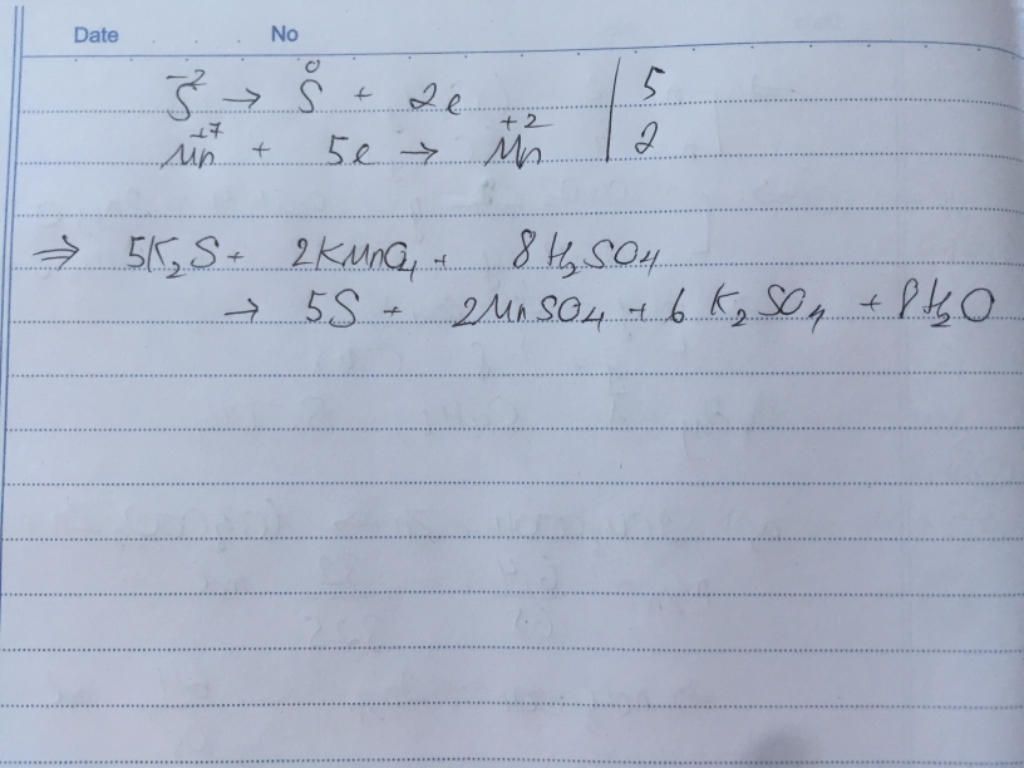 Date No
S⁻² → S⁰ + 2e | 5
Mn⁺⁷ + 5e → Mn⁺² | 2
⇒ 5K₂S + 2KMnO₄ + 8H₂SO₄
→ 5S + 2MnSO₄ + 6K₂SO₄ + 8H₂O